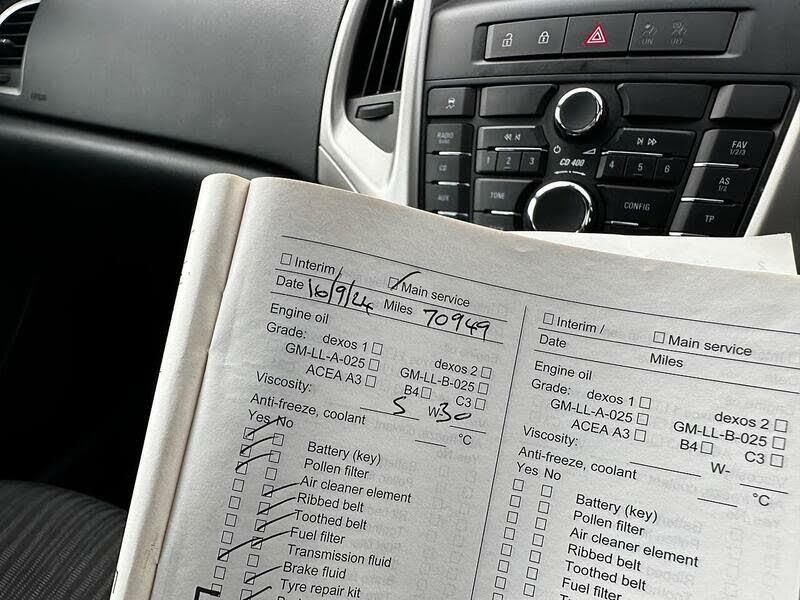 RADIO
BAND
CD
AUX
1 2 3
TONE
CD 400
4 5 6
CONFIG
FAV
1/2/3
AS
1/2
TP
Interim /
Main service
Date 16/9/24 Miles 70949
Engine oil
Grade: dexos 1 dexos 2
GM-LL-A-025 GM-LL-B-025
ACEA A3 B4 C3
Viscosity: 5 W-30
Anti-freeze, coolant °C
Yes No
Battery (key)
Pollen filter
Air cleaner element
Ribbed belt
Toothed belt
Fuel filter
Transmission fluid
Brake fluid
Tyre repair kit
Interim /
Main service
Date Miles
Engine oil
Grade: dexos 1 dexos 2
GM-LL-A-025 GM-LL-B-025
ACEA A3 B4 C3
Viscosity: W-
Anti-freeze, coolant °C
Yes No
Battery (key)
Pollen filter
Air cleaner element
Ribbed belt
Toothed belt
Fuel filter